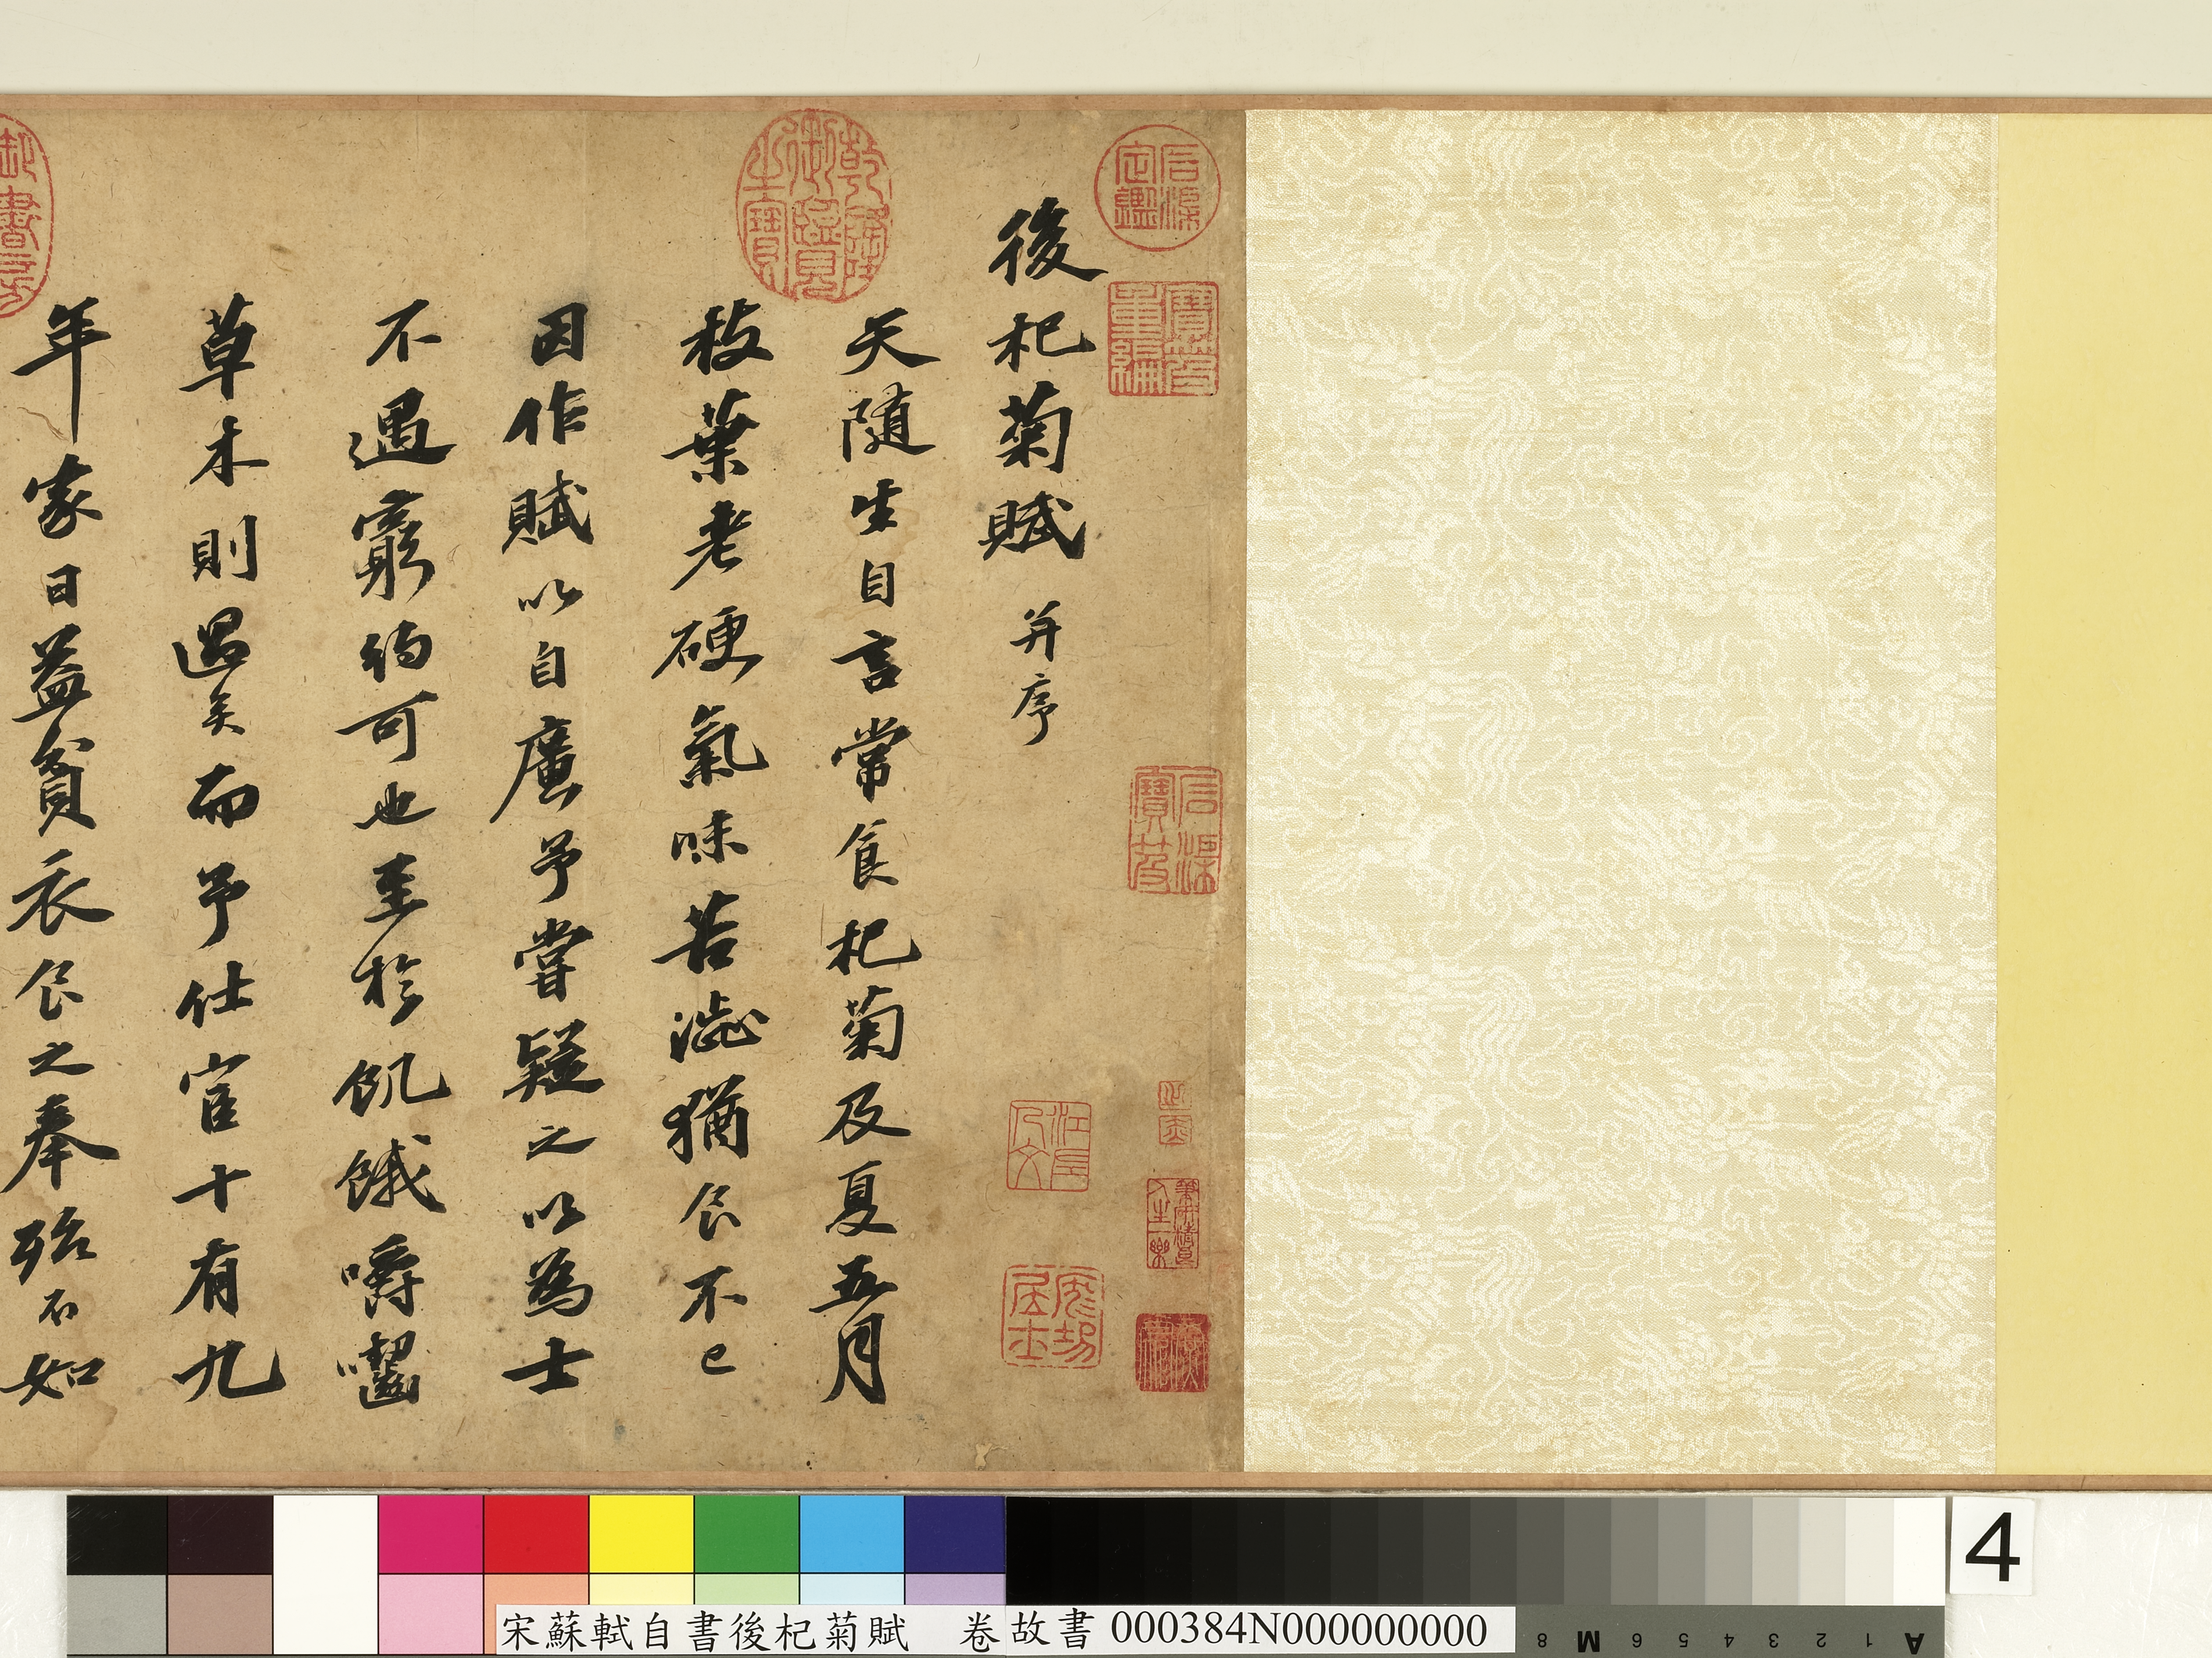 後杞菊賦并序
天隨生自言常食杞菊及夏五月
枝葉老硬氣味苦澁猶食不已
因作賦以自廣予嘗疑之以為士
不遇窮約可也至於飢餓嚼齧
草木則過矣而予仕宦十有九
年家日益貧衣食之奉殆不如
石渠定鑑
寶笈重編
石渠寶笈
乾隆御覽之寶
宋蘇軾自書後杞菊賦 卷 故書 000384N000000000
4
8 M 6 5 4 3 2 1 A